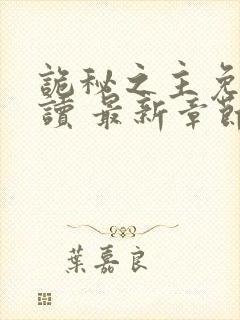 詭秘之主免
讀 最新章節
葉嘉良